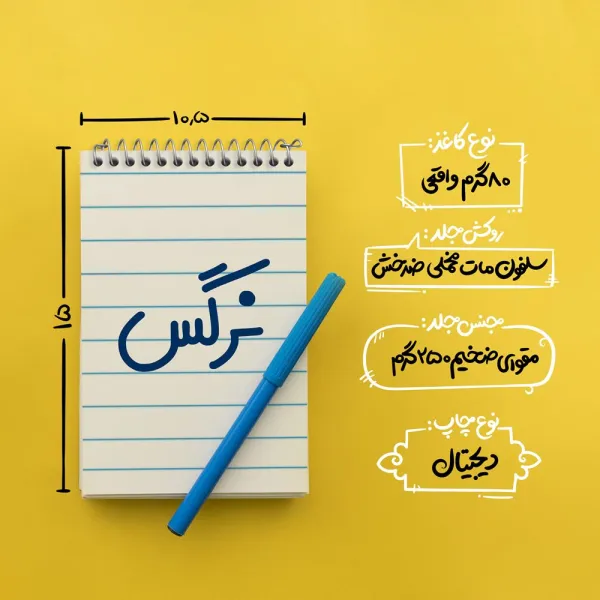 ۱۰٫۵
۱۵
نرگس
نوع کاغذ:
۸۰گرم واقعی
روکش جلد:
سلفون مات مخملی ضدخش
جنس جلد:
مقوای ضخیم ۲۵۰گرم
نوع چاپ:
دیجیتال